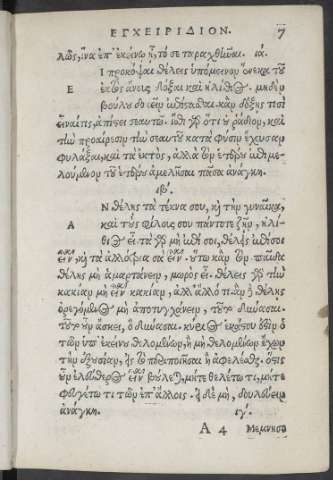 ΕΓΧΕΙΡΙΔΙΟΝ. 7
λῶς, ἵνα ἐπ' ἐκείνῳ ᾖ, τό σε ταραχθῆναι. ιά.
Ι προκόψαι θέλεις ὑπόμεινον ἕνεκα τῶν
Ε ἐκτὸς ἄνους δόξαι καὶ ἠλίθιος. μηδὲν
βούλου δοκεῖν ἐπίστασθαι. κἂν δόξῃς τισὶ
εἶναί τις, ἀπίστει σεαυτῷ. ἴσθι γὰρ ὅτι οὐ ῥᾴδιον, καὶ
τὴν προαίρεσιν τὴν σεαυτοῦ κατὰ φύσιν ἔχουσαν
φυλάξαι, καὶ τὰ ἐκτός, ἀλλὰ τὸν ἑτέρου ἐπιμε-
λούμενον τοῦ ἑτέρου ἀμελῆσαι πᾶσα ἀνάγκη.
ιβ'.
Ν θέλῃς τὰ τέκνα σου, καὶ τὴν γυναῖκα,
Α καὶ τοὺς φίλους σου πάντοτε ζῆν, ἠλί-
θιος εἶ. τὰ γὰρ μὴ ἐπὶ σοὶ, θέλεις ἐπὶ σοὶ
εἶναι, καὶ τὰ ἀλλότρια σὰ εἶναι. οὕτω κἂν τὸν παῖδα
θέλῃς μὴ ἁμαρτάνειν, μωρὸς εἶ. θέλεις γὰρ τὴν
κακίαν μὴ εἶναι κακίαν, ἀλλ' ἄλλό τι. ἂν δὲ θέλῃς
ὀρεγόμενος μὴ ἀποτυγχάνειν, τοῦτο δύνασαι.
τοῦτο οὖν ἄσκει, ὃ δύνασαι. κύριος ἑκάστου ἐστὶν ὁ
τῶν ὑπ' ἐκείνου θελομένων, ἢ μὴ θελομένων ἔχων
τὴν ἐξουσίαν, εἰς τὸ περιποιῆσαι ἢ ἀφελέσθαι. ὅστις
οὖν ἐλεύθερος εἶναι βούλεται, μήτε θελέτω τι, μήτε
φευγέτω τι τῶν ἐπ' ἄλλοις. εἰ δὲ μὴ, δουλεύειν
ἀνάγκη. ιγ'.
A 4 Μέμνησο